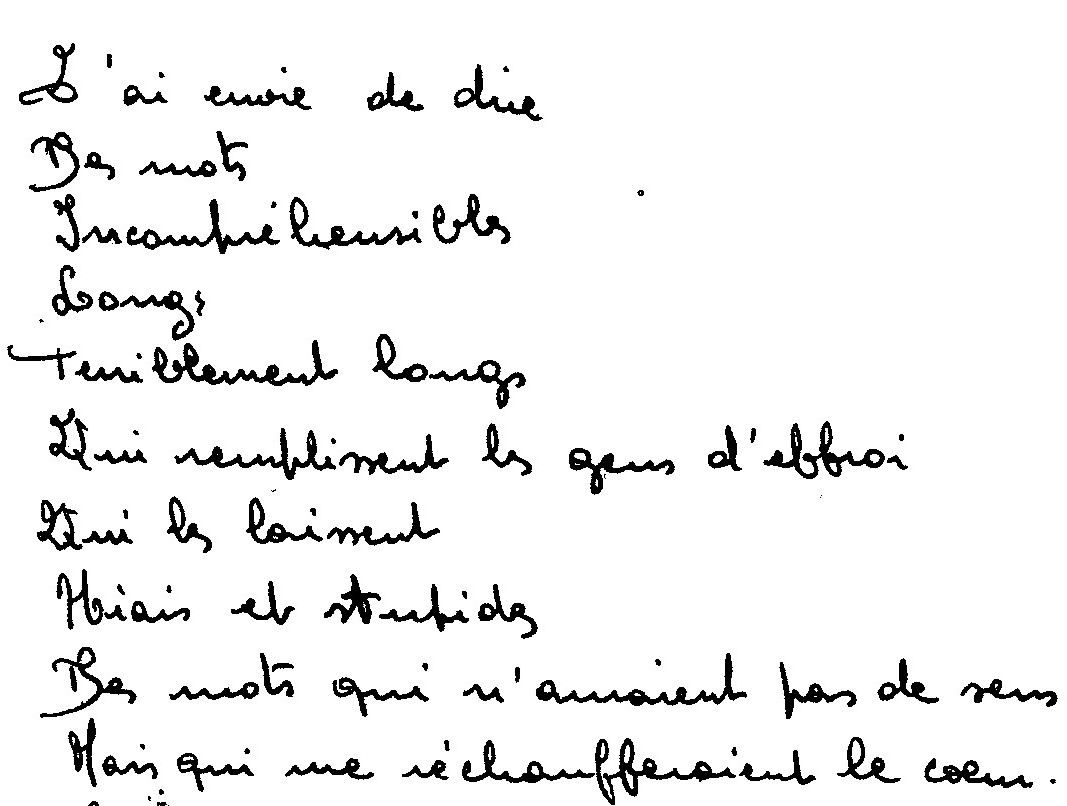 J'ai envie de dire
Des mots
Incompréhensibles
Longs
Terriblement longs
Qui remplissent les gens d'effroi
Qui les laissent
Niais et stupides
Des mots qui n'auraient pas de sens
Mais qui me réchaufferaient le coeur.